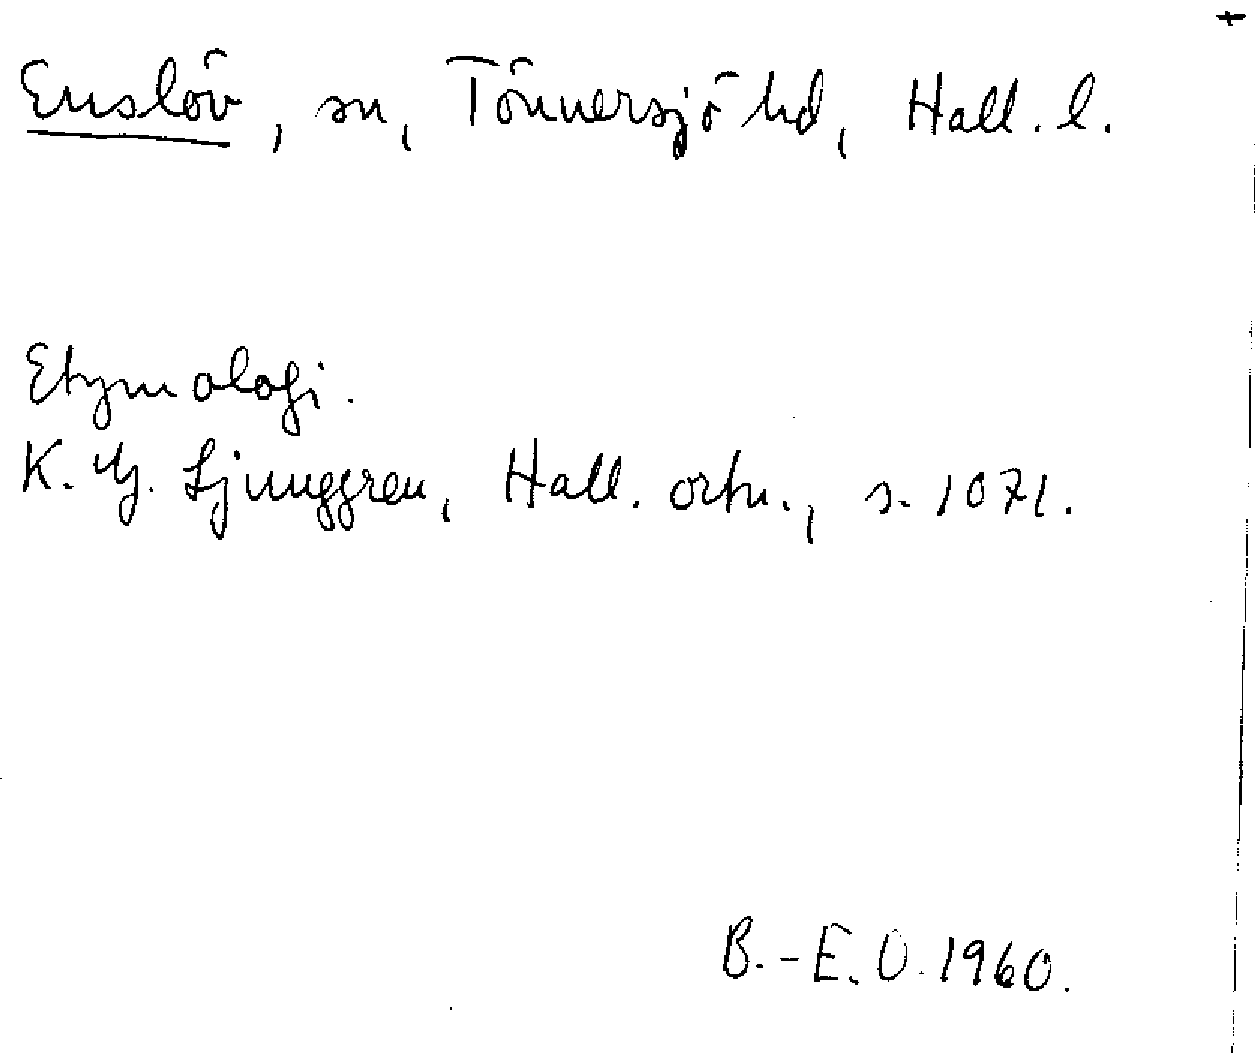 Enslöv, sn, Tönnersjö hd, Hall. l.
Etymologi.
K. G. Ljunggren, Hall. ortn., s. 1071.
B.-E. O. 1960.